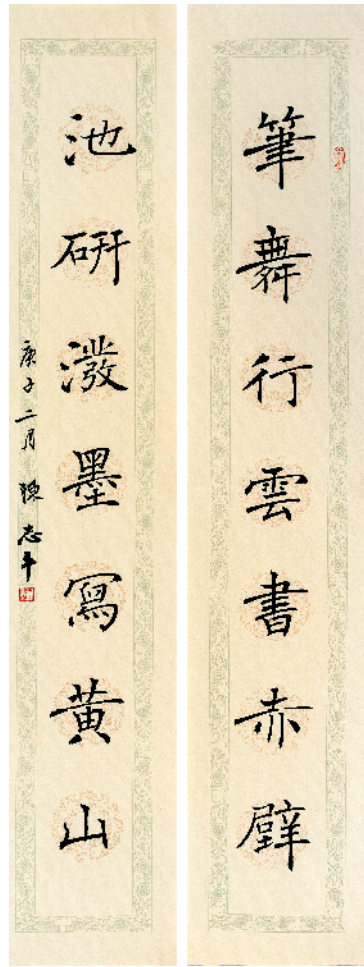 筆舞行雲書赤壁
池研潑墨寫黃山
庚子二月陳志平